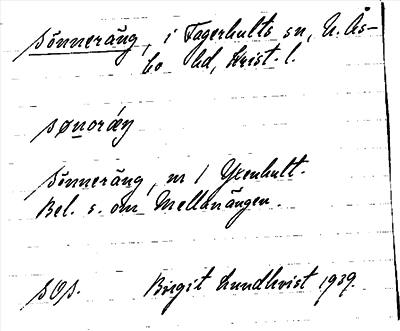 Sönneräng, i Fagerhults sn, N. Ås-
bo hd, Krist. l.
sønoráŋ
Sönneräng, nr 1 Yxenhult.
Bel. s. om Mellanängen.
SOS. Birgit Lundkvist 1939.